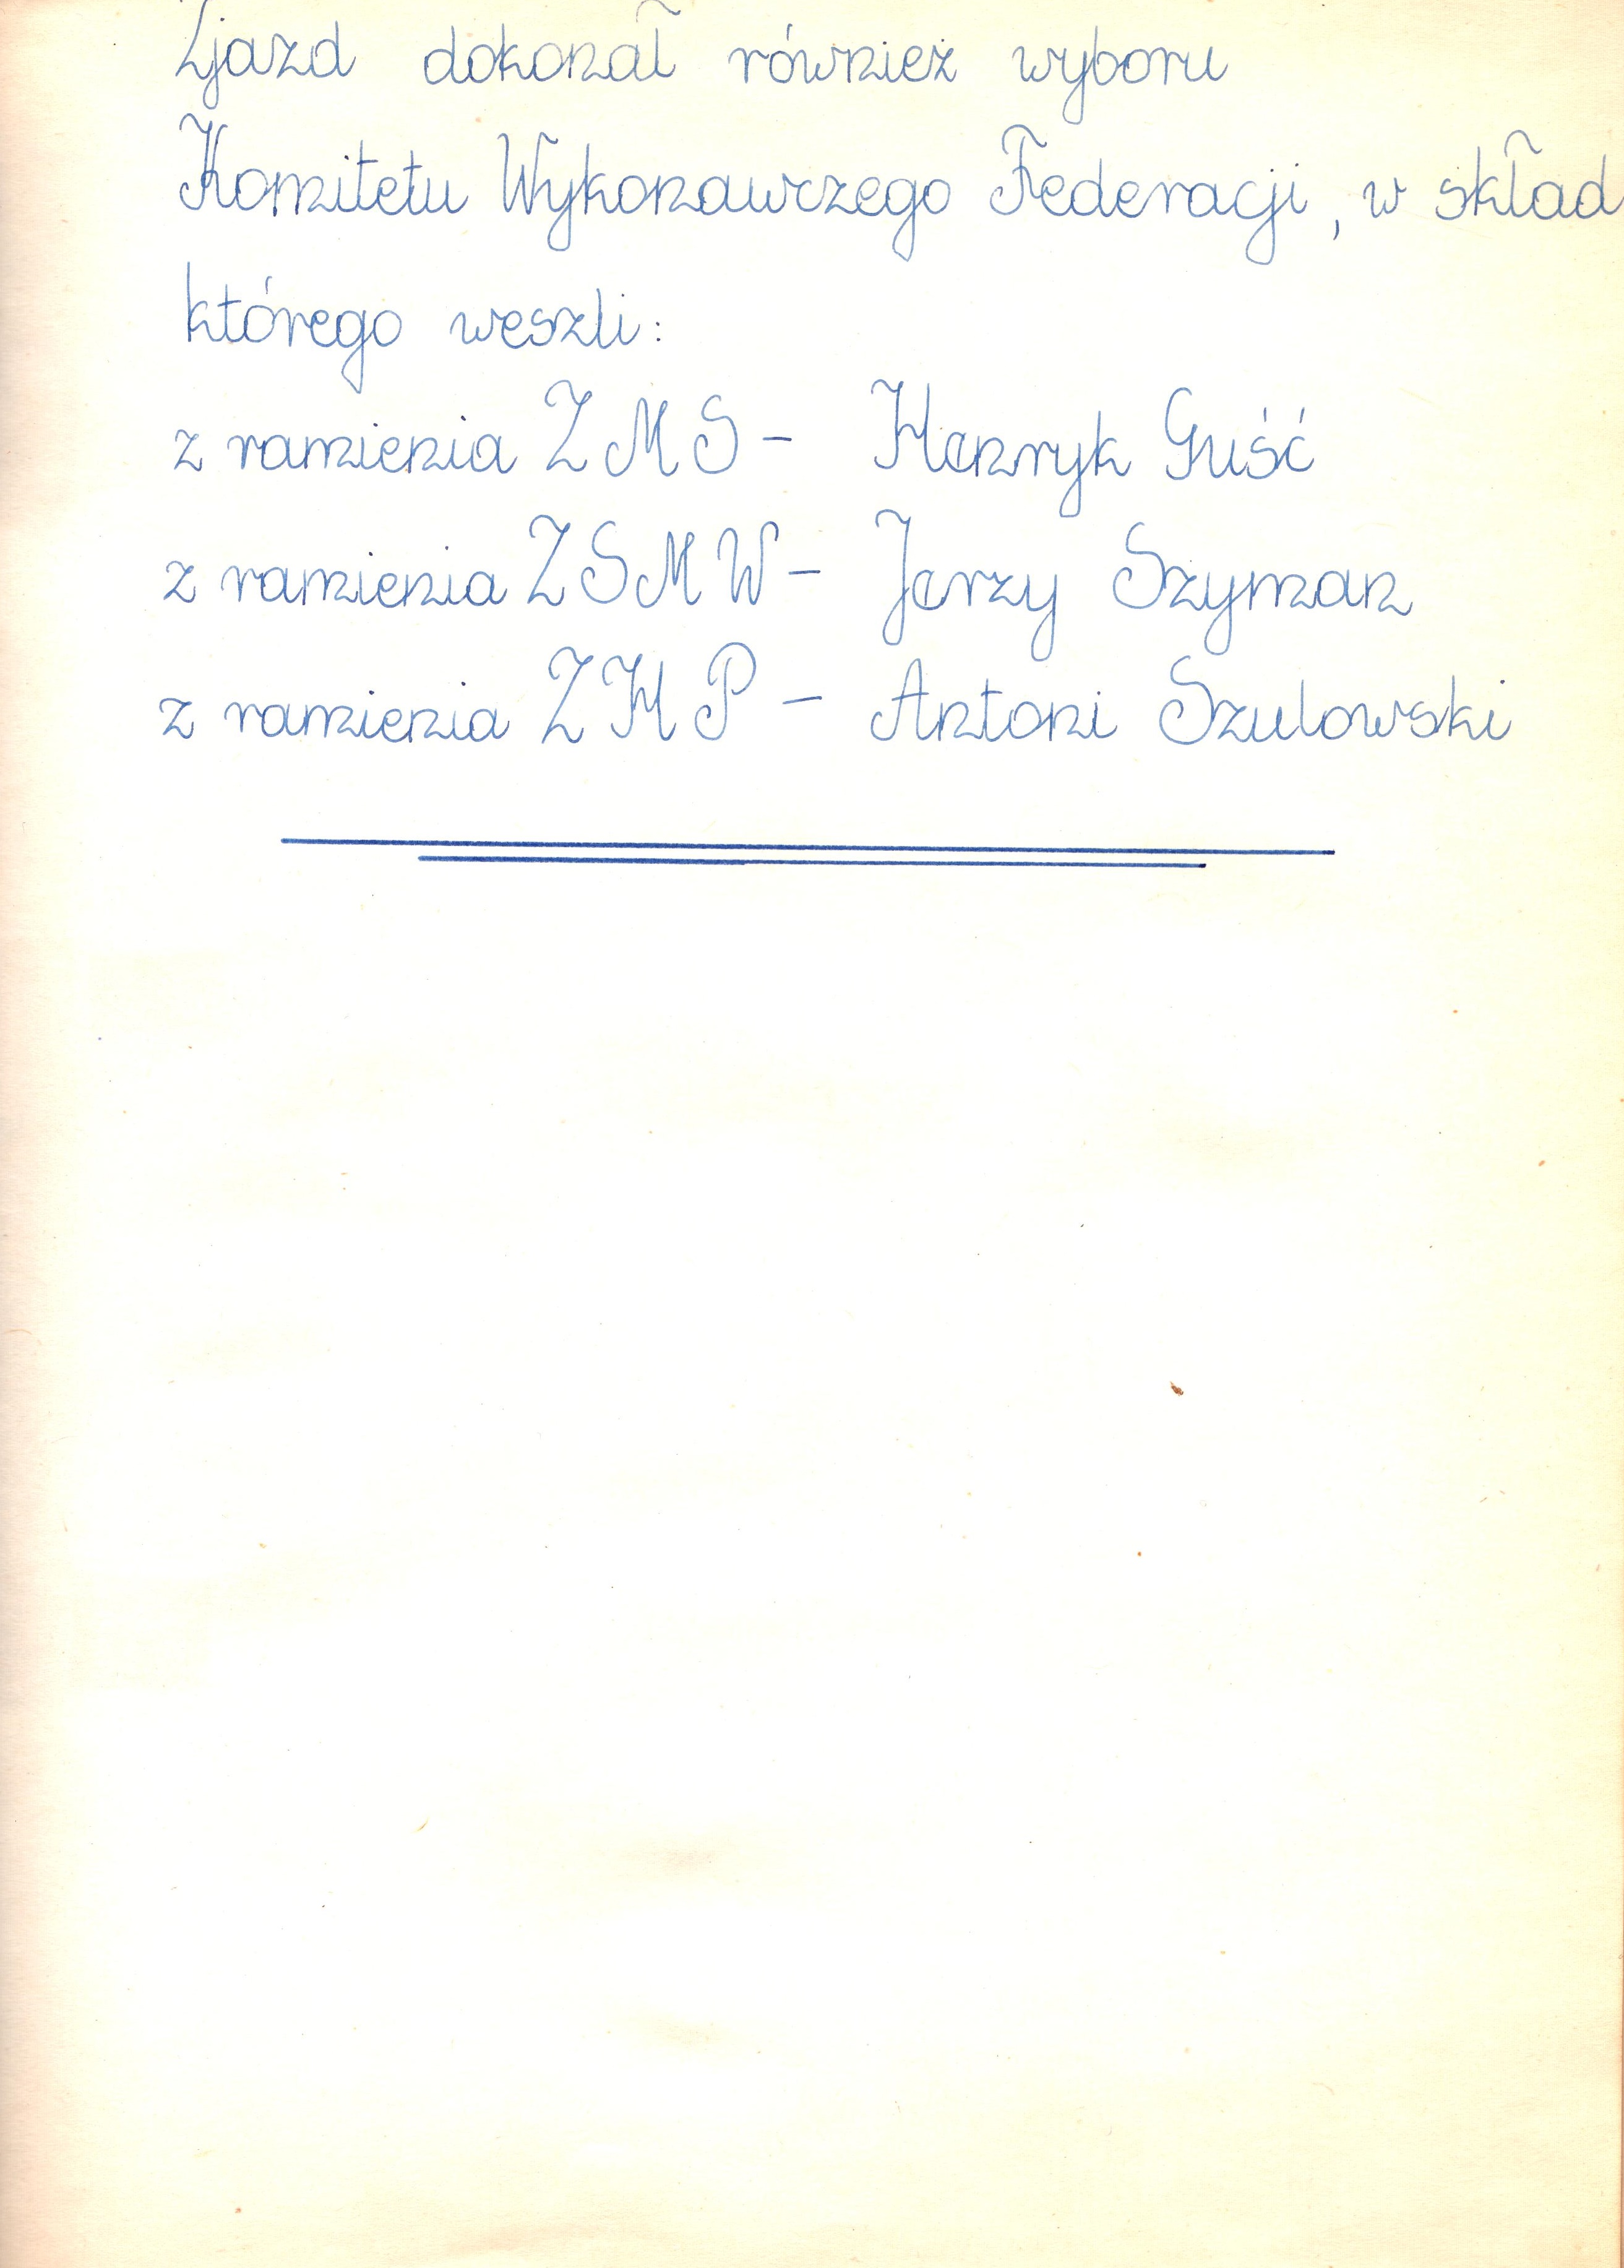 Zjazd dokonał również wyboru
Komitetu Wykonawczego Federacji, w skład
którego weszli:
z ramienia ZMS - Henryk Guść
z ramienia ZSMW - Jerzy Szyman
z ramienia ZHP - Antoni Szulowski